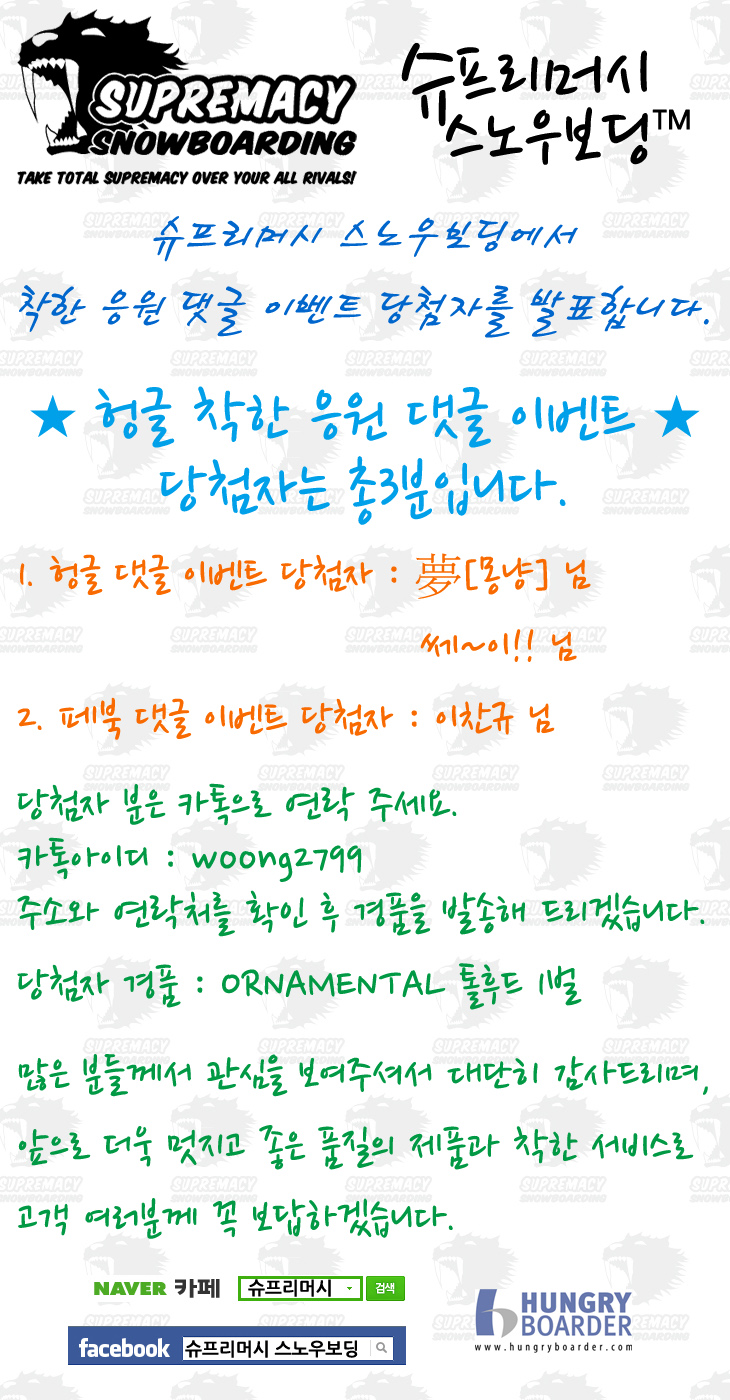 SUPREMACY
SNOWBOARDING
TAKE TOTAL SUPREMACY OVER YOUR ALL RIVALS!
슈프리머시
스노우보딩™
슈프리머시 스노우보딩에서
착한 응원 댓글 이벤트 당첨자를 발표합니다.
★ 헝글 착한 응원 댓글 이벤트 ★
당첨자는 총3분입니다.
1. 헝글 댓글 이벤트 당첨자 : 夢[몽냥] 님
쎄~이!! 님
2. 페북 댓글 이벤트 당첨자 : 이찬규 님
당첨자 분은 카톡으로 연락 주세요.
카톡아이디 : woong2799
주소와 연락처를 확인 후 경품을 발송해 드리겠습니다.
당첨자 경품 : ORNAMENTAL 톨후드 1벌
많은 분들께서 관심을 보여주셔서 대단히 감사드리며,
앞으로 더욱 멋지고 좋은 품질의 제품과 착한 서비스로
고객 여러분께 꼭 보답하겠습니다.
NAVER 카페 슈프리머시 검색
facebook 슈프리머시 스노우보딩
HUNGRY
BOARDER
www.hungryboarder.com